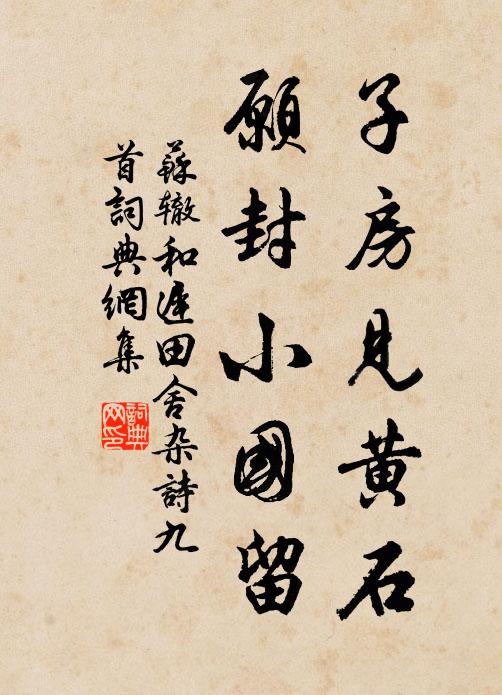 子房見黄石
願封小國留
蘇辙和遲田舍杂詩九
首詞典網集
詞典网印